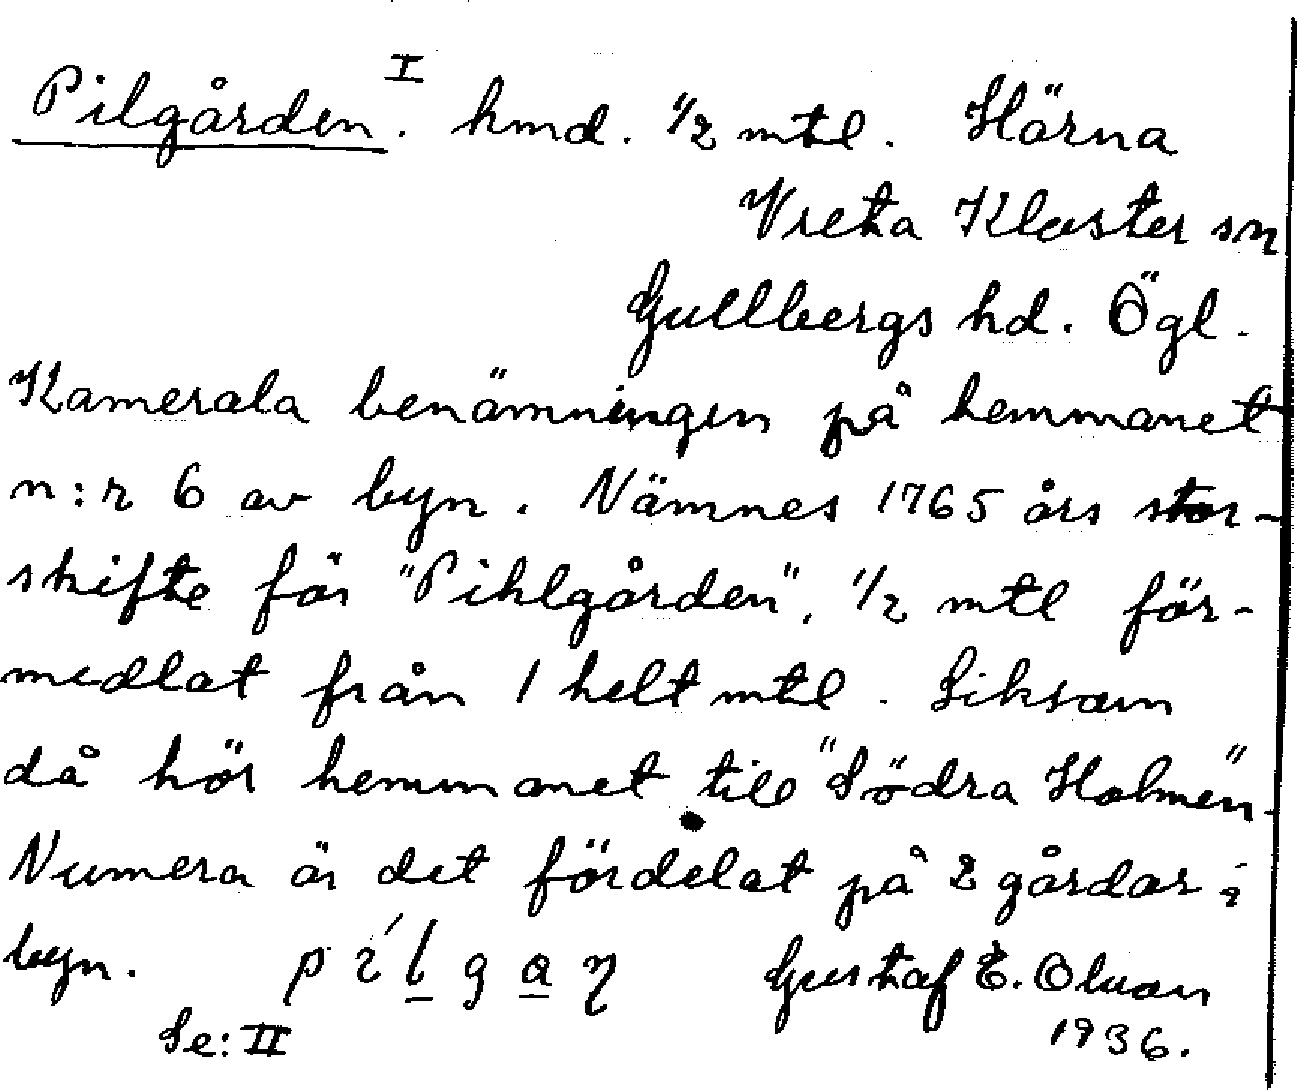 Pilgården. I hmd. 1/2 mtl. Härna
Vreta Kloster sn
Gullbergs hd. Ögl.
Kamerala benämningen på hemmanet
n:r 6 av byn. Nämnes 1765 års stor-
skifte för "Pihlgården", 1/2 mtl för-
medlat från 1 helt mtl. Liksom
då hör hemmanet till "Södra Holmen".
Numera är det fördelat på 2 gårdar i
byn. Gustaf E. Olson
Se: II 1936.